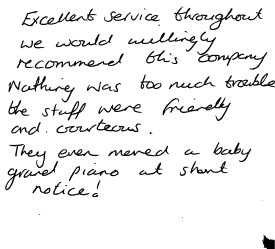 Excellent service throughout
we would willingly
recommend this company
Nothing was too much trouble
the staff were friendly
and courteous.
They even moved a baby
grand piano at short
notice!